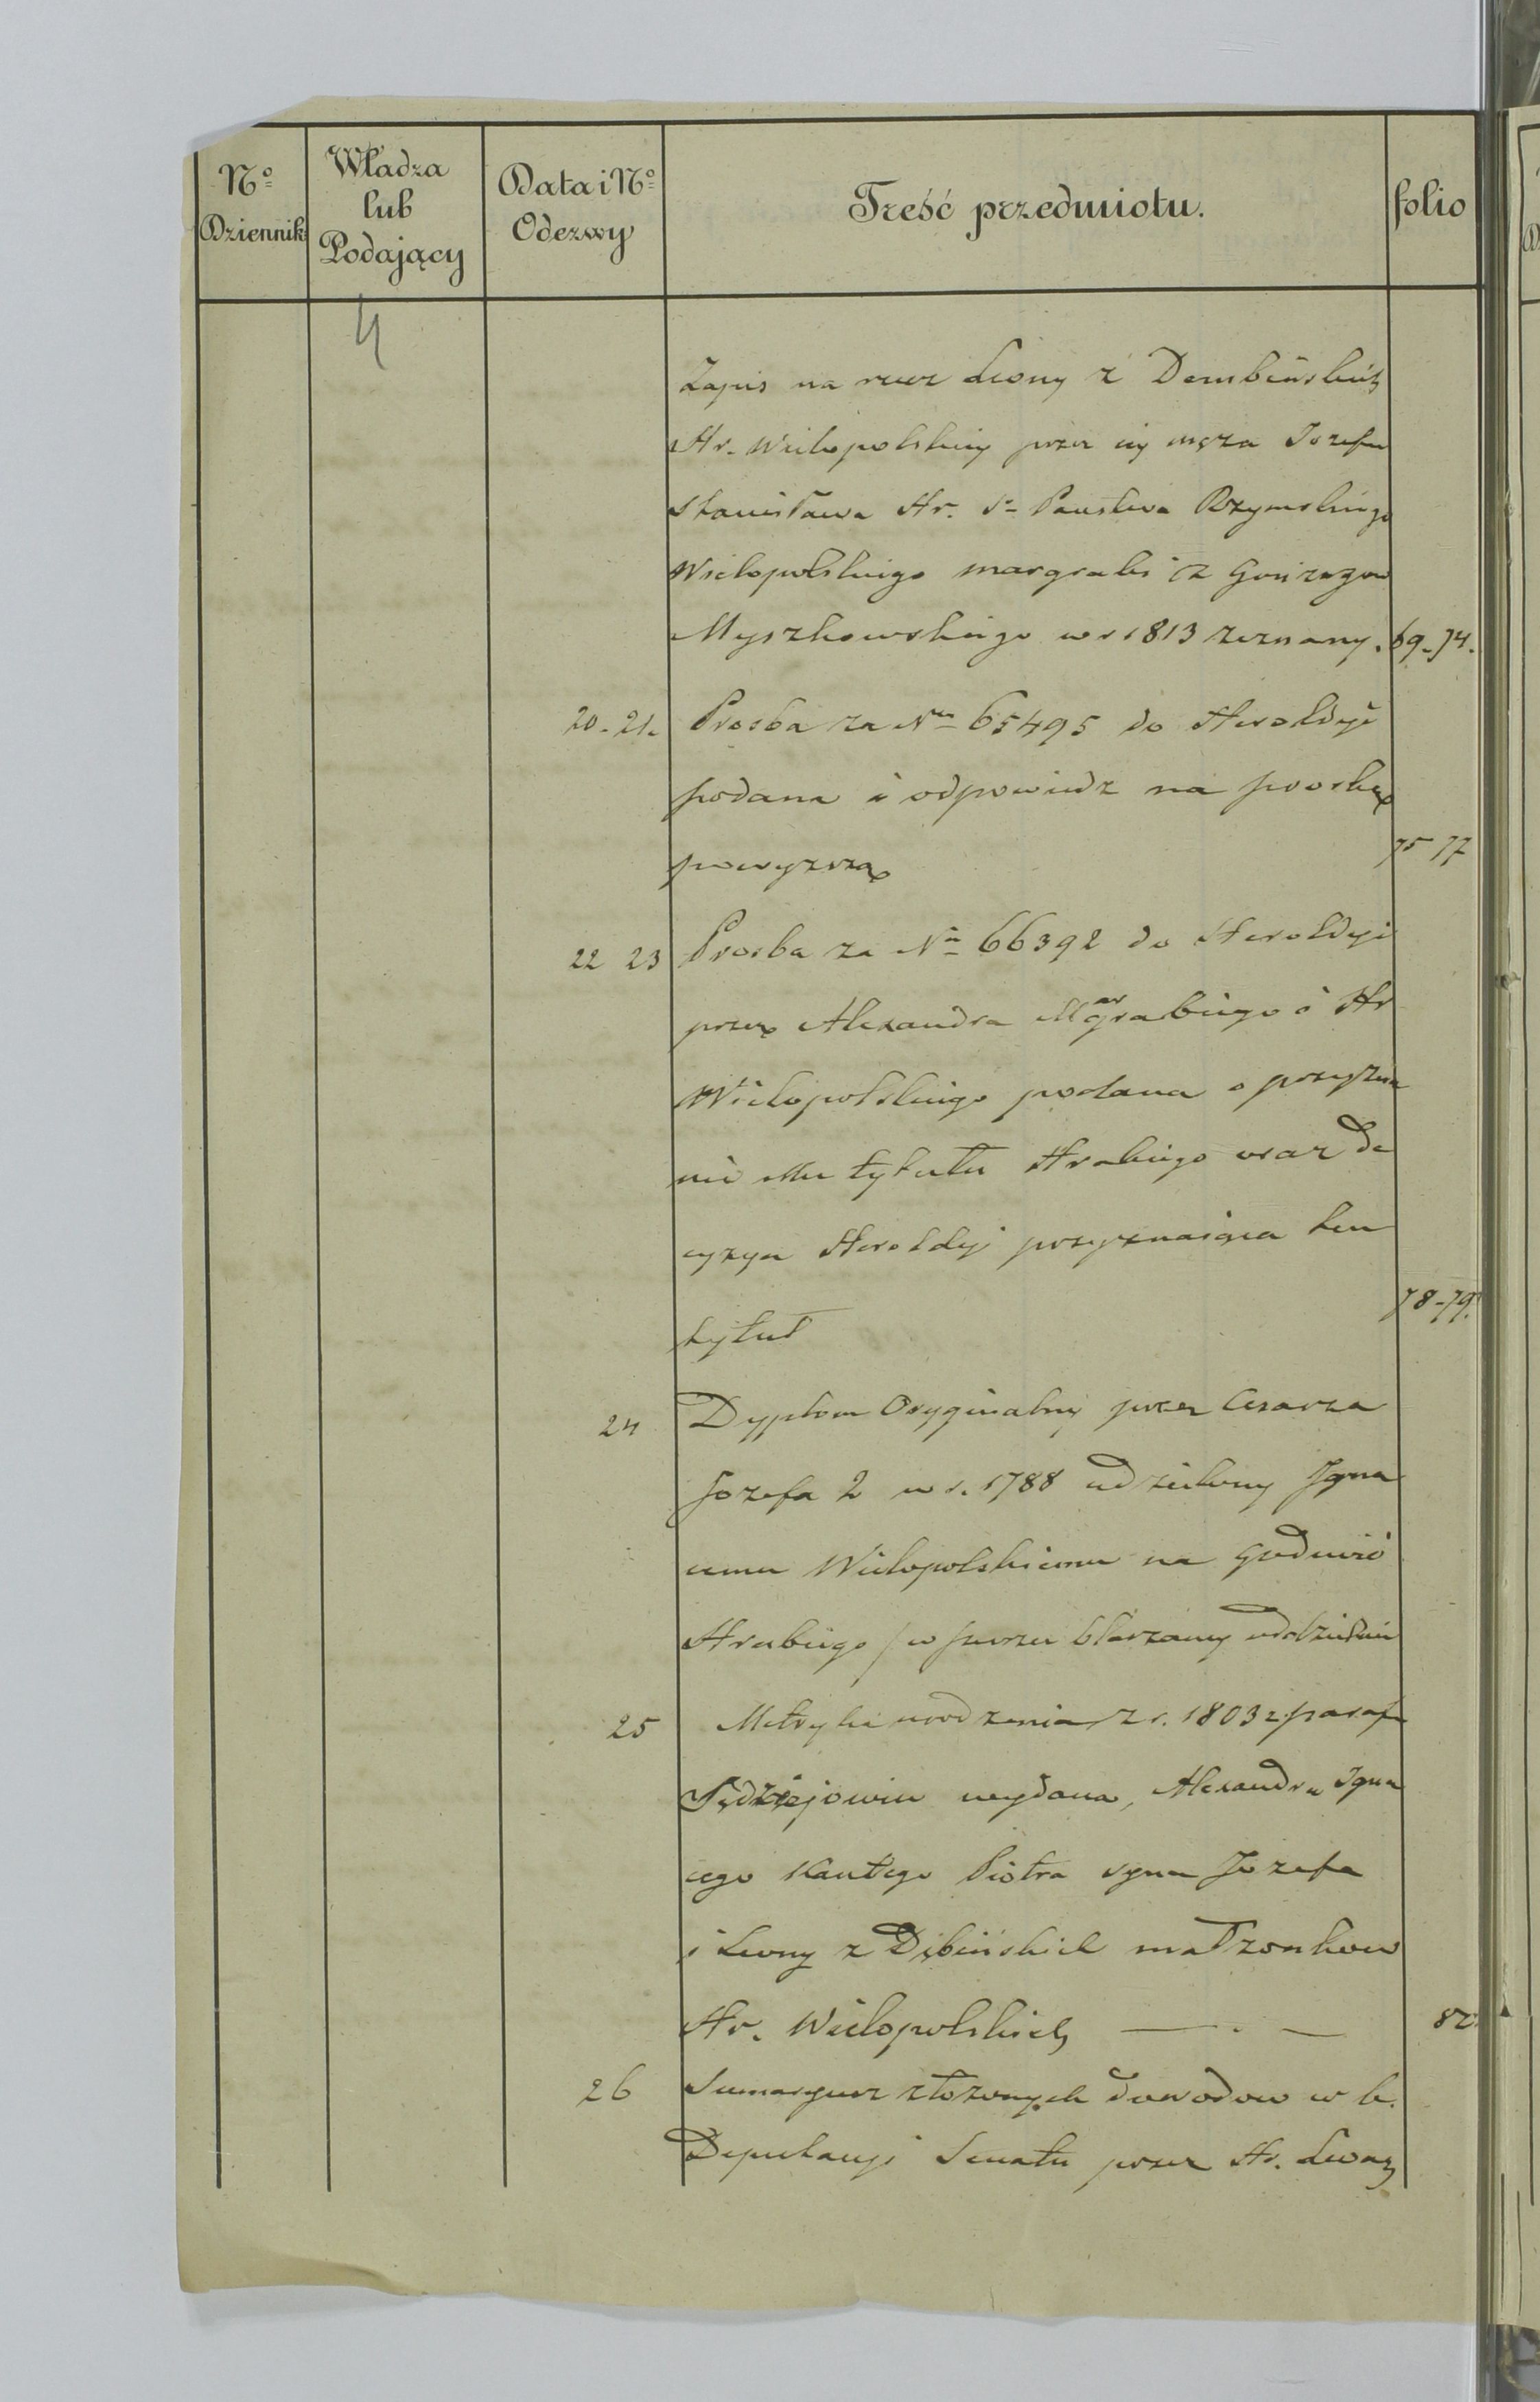 Nº Dziennik
Władza lub Podający
Data i Nº Odezwy
Treść przedmiotu.
folio
4
Zapis na rzecz Leony z Dembińskich
Hr. Wielopolskiey przez iey męza Jozefa
Stanisława Hr. Sº Panstwa Rzymskiego
Wielopolskiego margrabi z Gonzagow
Myszkowskiego w r 1813 zeznany. 69-74.
20-21. Prosba za Nm 65495 do Heroldyi
podana i odpowiedz na prosbę
powyzszą 75 77
22 23 Prosba za Nm 66392 do Heroldyi
przez Alexandra Margrabiego i Hr
Wielopolskiego podana o przyzna
nie Mu tytułu Hrabiego oraz de
cyzya Heroldyi przyznaiąca ten
tytuł 78-79.
24 Dyplom Oryginalny przez Cesarza
Jozefa 2 w r. 1788 udzielony Igna
cemu Wielopolskiemu na godność
Hrabiego / w puszce blaszaney oddzielnie
25 Metryka urodzenia z r. 1803 z paraf
Sędziejowic wydana, Alexandra Igna
cego Kantego Piotra syna Jozefa
i Leony z Dębińskich małzonkow
Hr. Wielopolskich — . — 82.
26 Sumaryusz złozonych dowodow w b.
Deputacyi Senatu przez Hr. Leonę